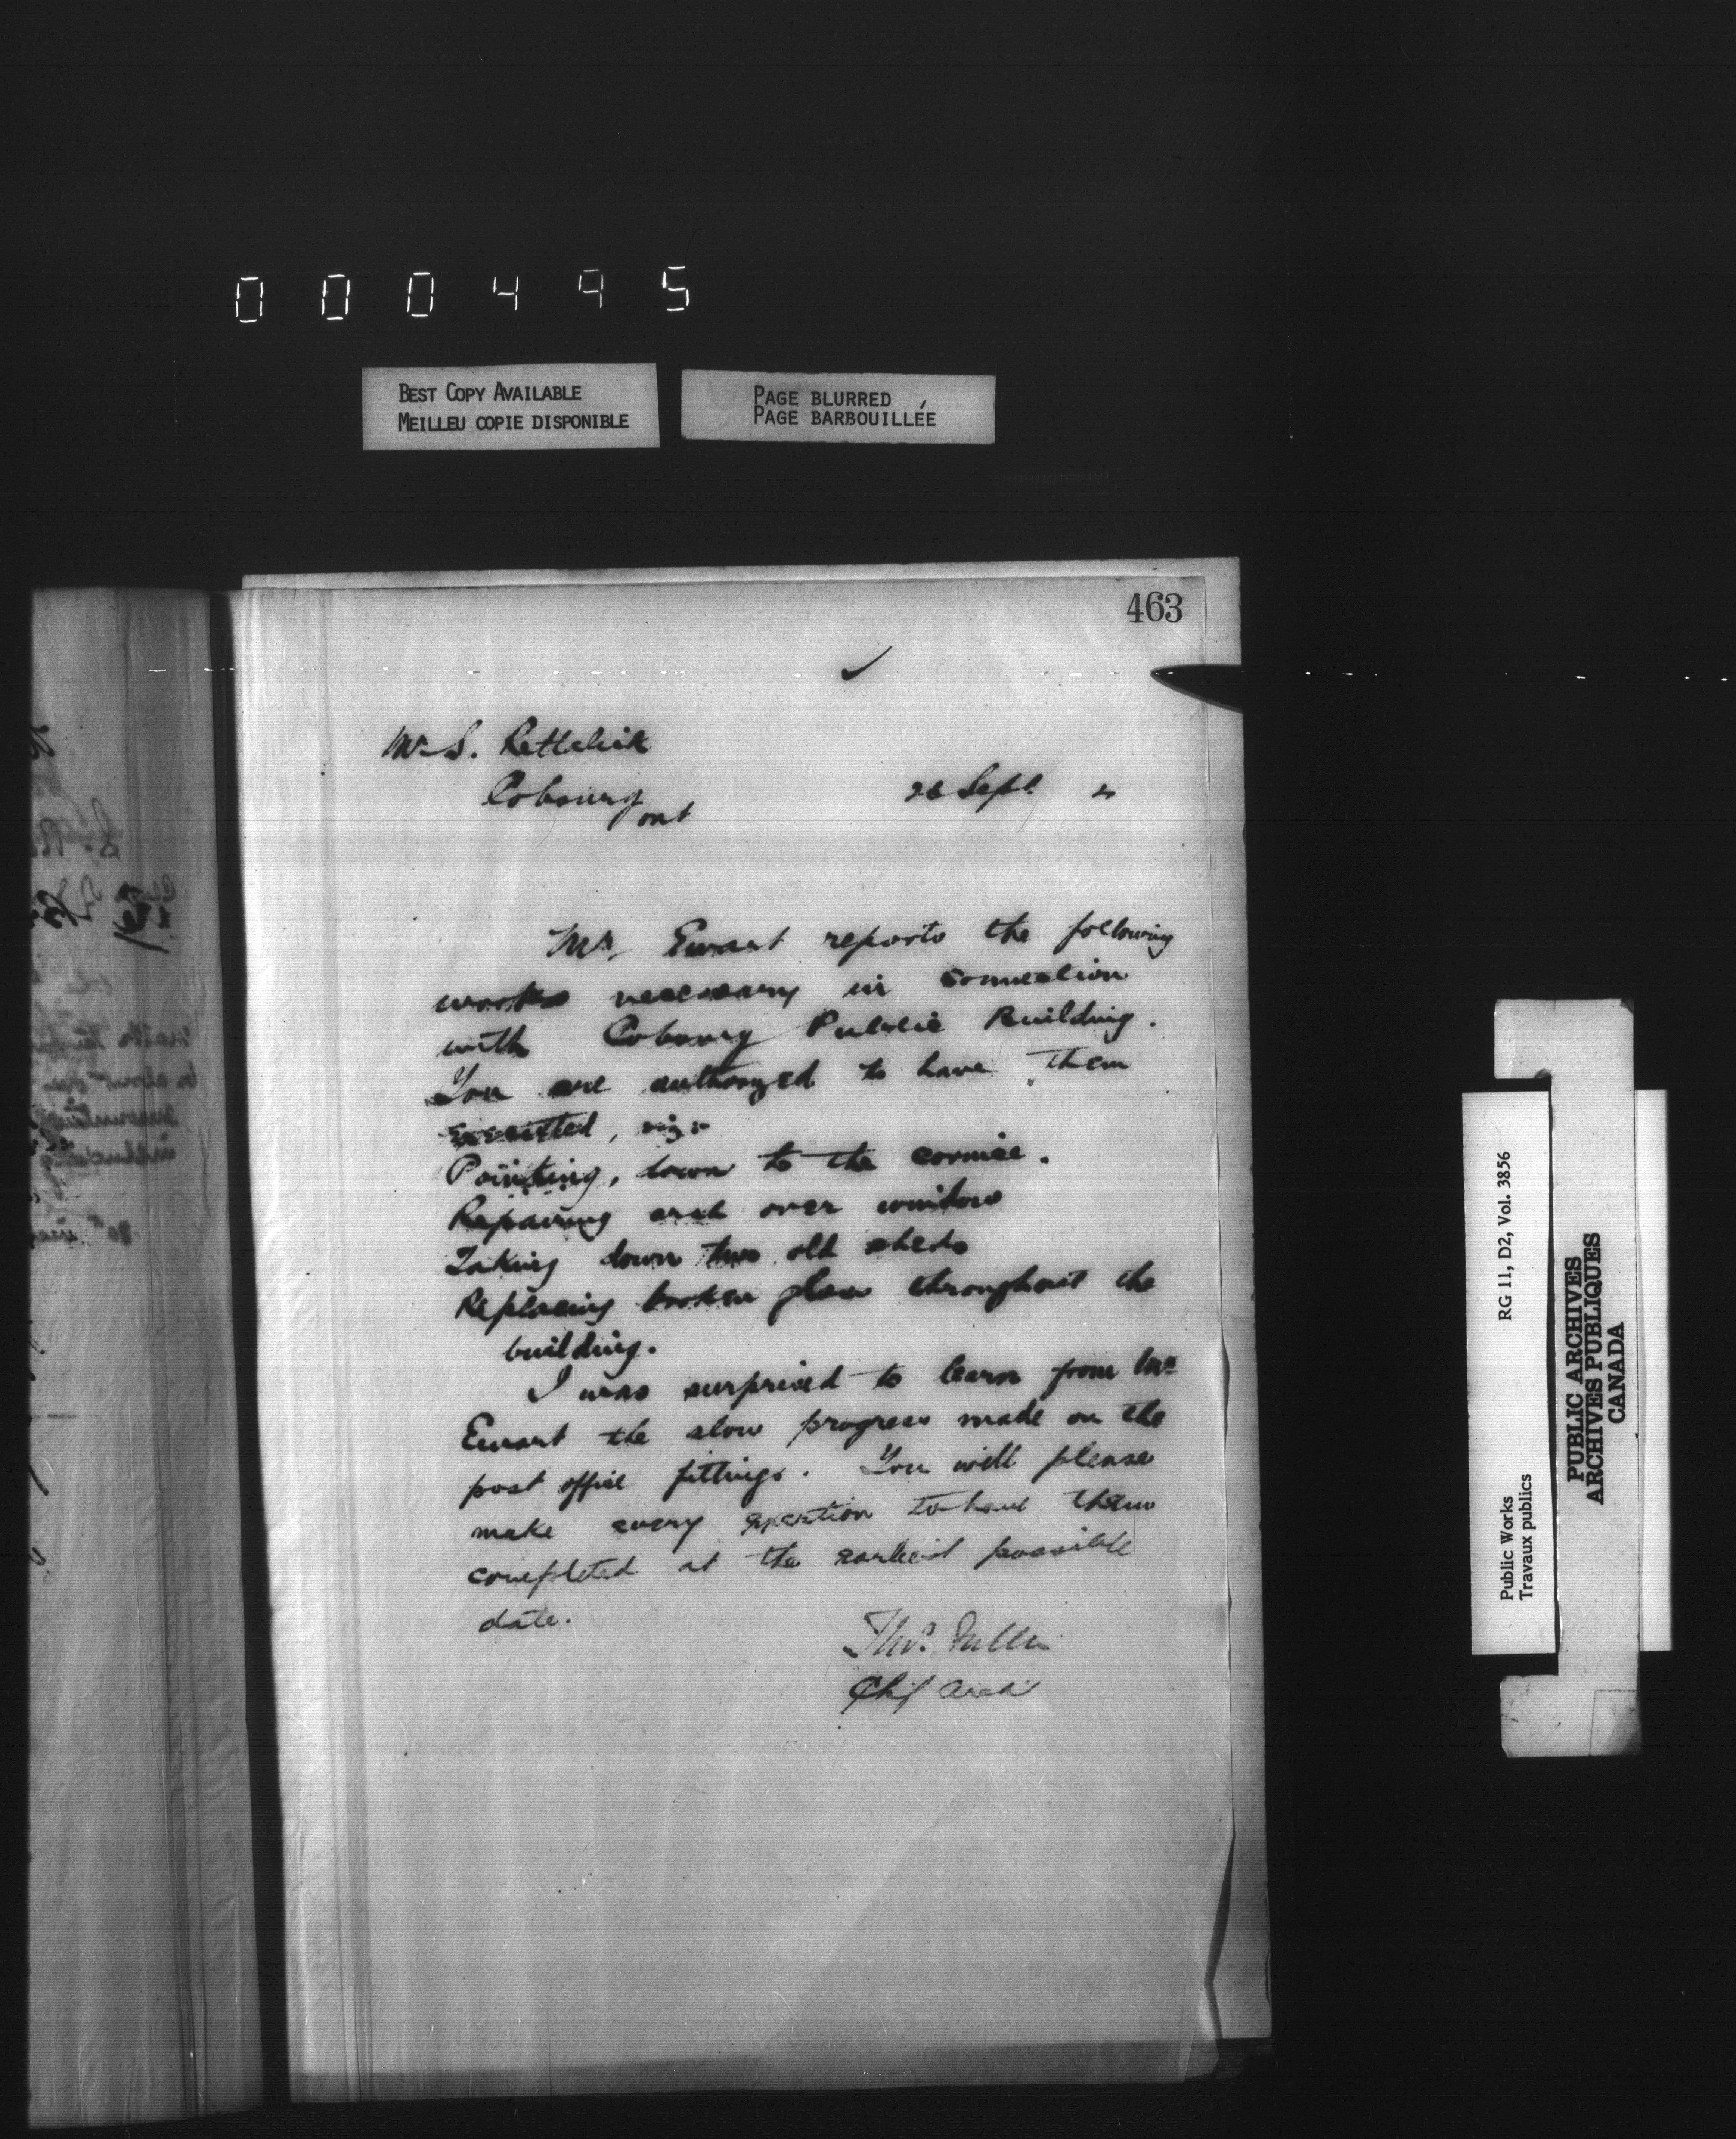 000495
BEST COPY AVAILABLE
MEILLEU COPIE DISPONIBLE
PAGE BLURRED
PAGE BARBOUILLÉE
463
Mr S.
Cobourg
ont
26 Sept.
Mr. Ewart reports the following
works necessary in connection
with Cobourg Public Building.
You are authorized to have them
executed, viz:
Pointing, down to the cornice.
Repairing arch over window
Taking down two old sheds
Replacing broken glass throughout the
building.
I was surprised to learn from Mr
Ewart the slow progress made on the
post office fittings. You will please
make every exertion to have them
completed at the earliest possible
date.
Thos. Fuller
Chf Arch
Public Works
Travaux publics
RG 11, D2, Vol. 3856
PUBLIC ARCHIVES
ARCHIVES PUBLIQUES
CANADA